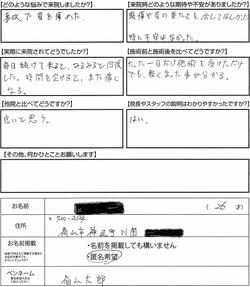 【どのような悩みで来院しましたか?】
事故で首を痛めた。
【来院時どのような期待や不安がありましたか?】
特に不安はなかった。
【実際に来院されてどうでしたか?】
毎日続けて来ると、みるみると回復
した。時間を空けると、また痛く
なる。
【施術前と施術後を比べてどうですか?】
たった一日だけ施術を受けただけ
でも、軽くなった事が分かる。
【他院と比べてどうですか?】
良いと思う。
【院長やスタッフの説明はわかりやすかったですか?】
はい。
【その他、何かひとことお願いします】
お名前
(26才)
ご住所
福山市神辺町川南
お名前掲載
・名前を掲載しても構いません
・匿名希望
ペンネーム
福山太郎